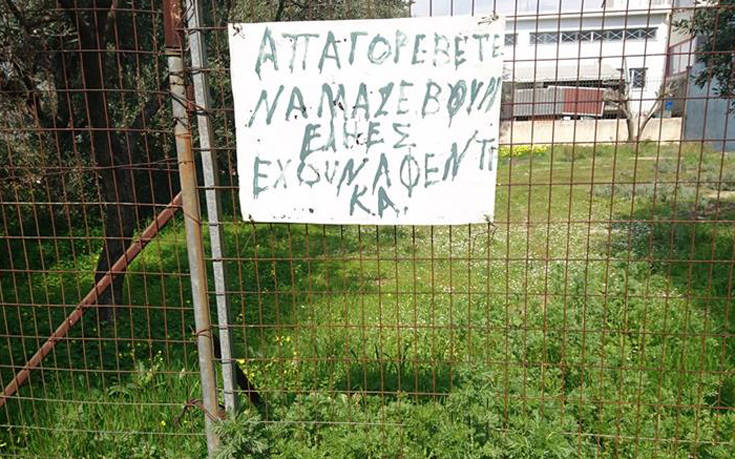 ΑΠΑΓΟΡΕΒΕΤΕ
ΝΑ ΜΑΖΕΒΟΥΝ
ΕΛΗΕΣ
ΕΧΟΥΝ ΑΦΕΝΤΙ
ΚΑ.